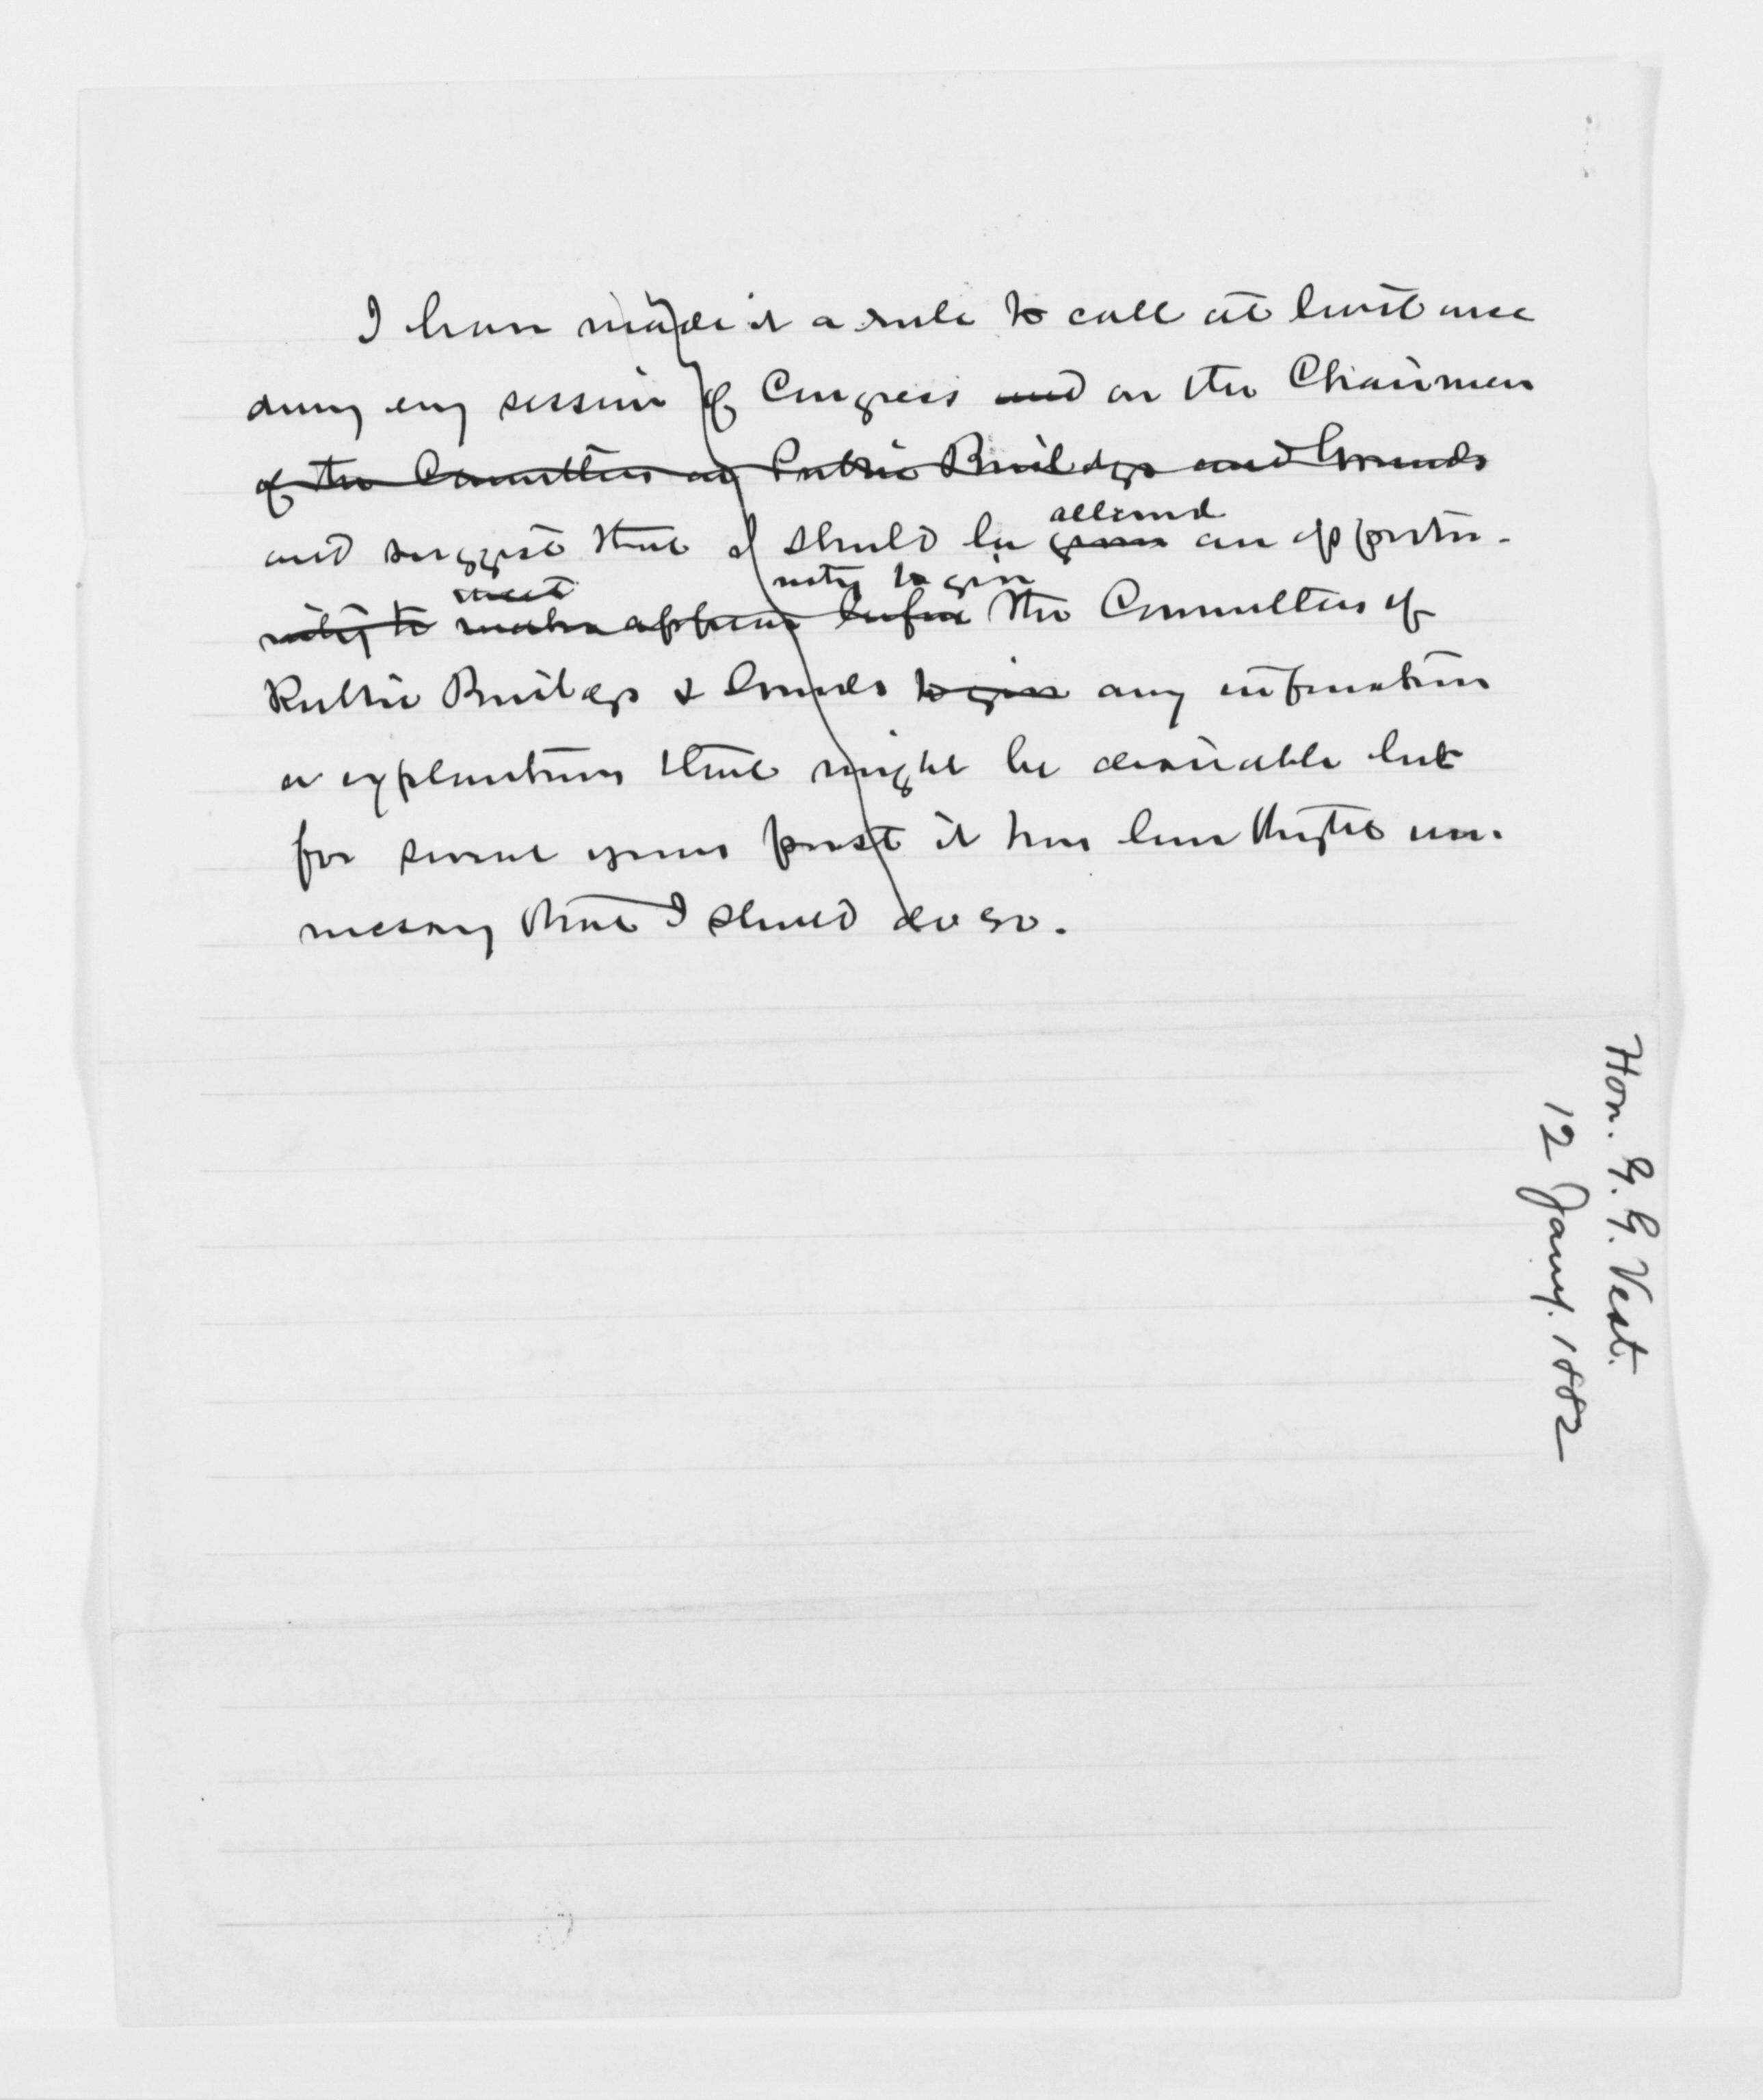 I have made it a rule to call at least once
during every session of Congress and on the Chairmen
of the Committees on Public Buildgs and Grounds
and suggest that I should be given allowed an opportu-
nity to make meet appear before nity to give the Committees of
Public Buildgs & Grounds to give any information
or explanations that might be desirable but
for several years past it has been thought un-
necessary that I should do so.
Hon. G. G. Vest.
12 Jany. 1882